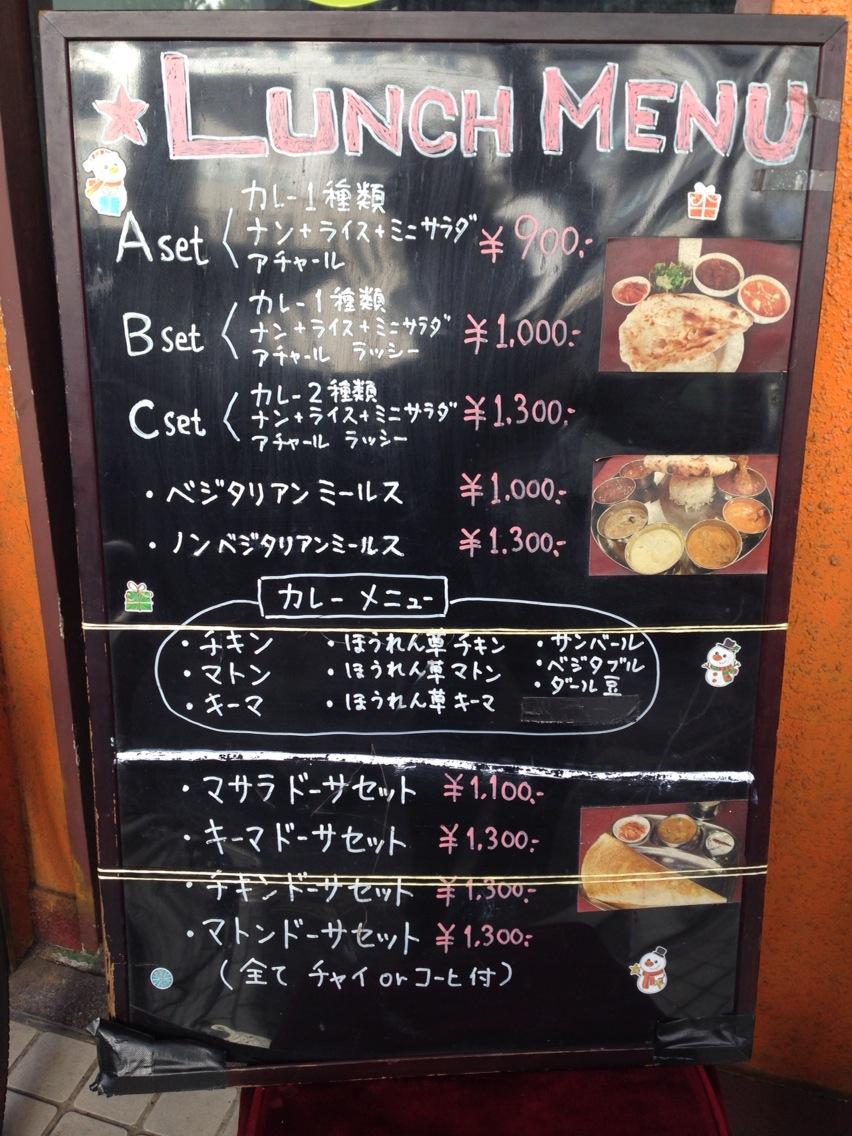 ★ LUNCH MENU
カレー1種類
A set ナン+ライス+ミニサラダ ¥900.-
アチャール
カレー1種類
B set ナン+ライス+ミニサラダ ¥1,000.-
アチャール ラッシー
カレー2種類
C set ナン+ライス+ミニサラダ ¥1,300.-
アチャール ラッシー
・ベジタリアンミールス ¥1.000.-
・ノンベジタリアンミールス ¥1.300.-
カレー メニュー
・チキン ・ほうれん草チキン ・サンバール
・マトン ・ほうれん草マトン ・ベジタブル
・キーマ ・ほうれん草キーマ ・ダール豆
・マサラドーサセット ¥1.100.-
・キーマドーサセット ¥1,300.-
・チキンドーサセット ¥1,300.-
・マトンドーサセット ¥1.300.-
(全て チャイorコーヒ付)